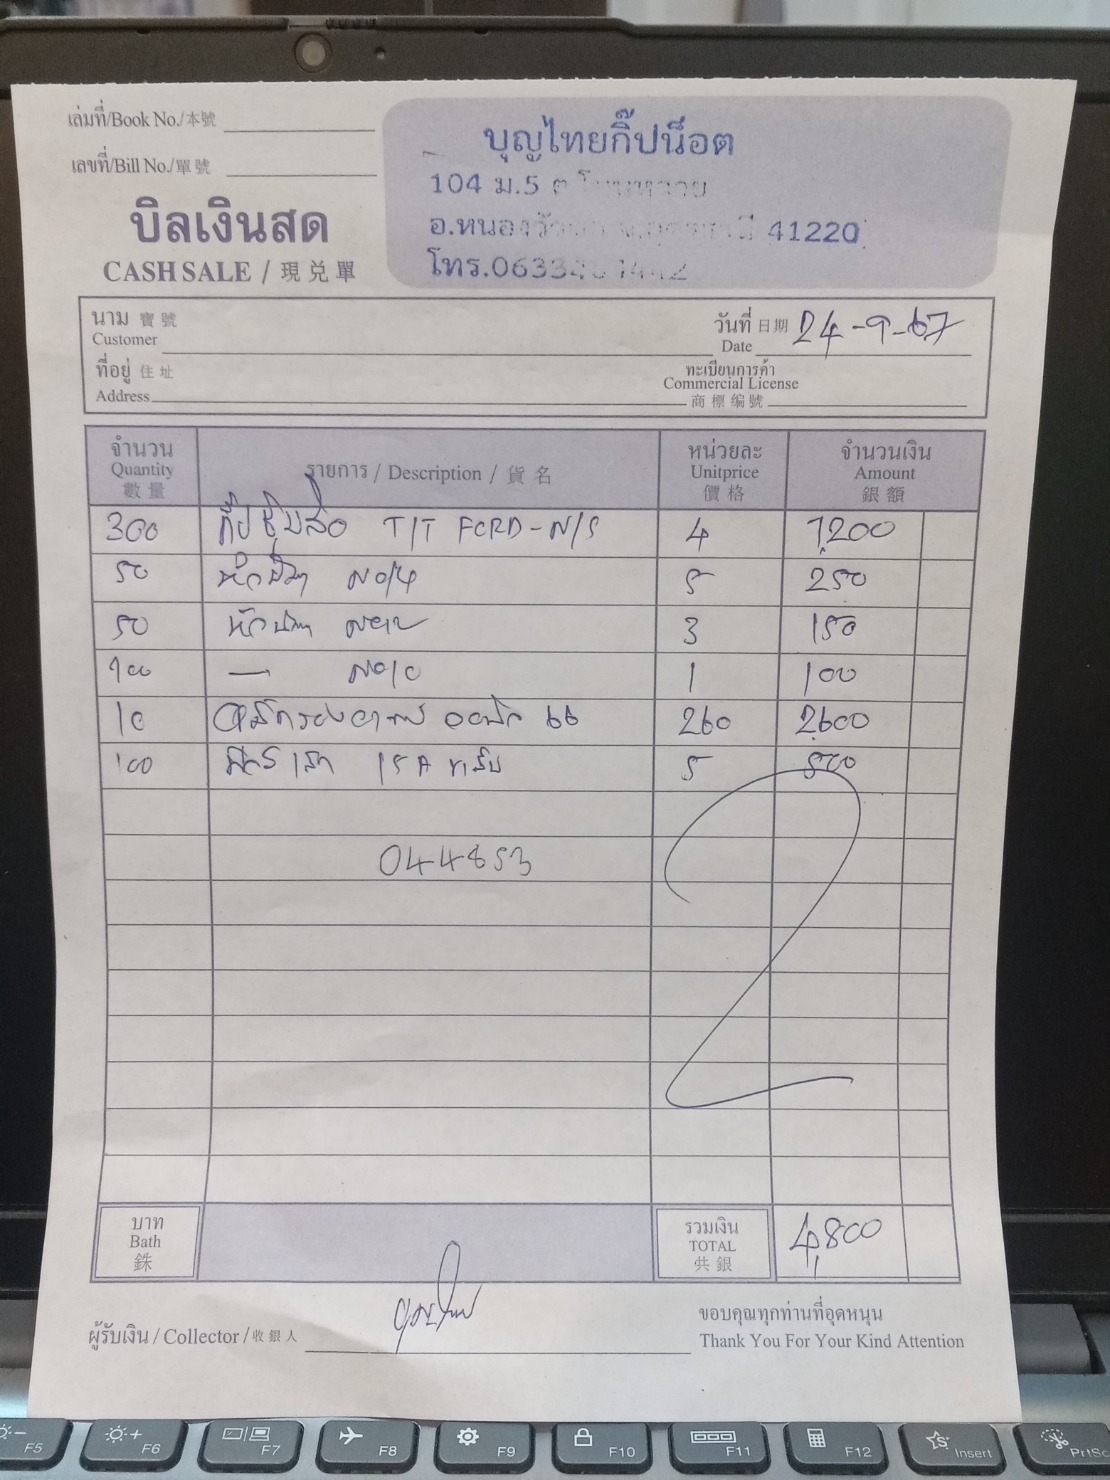 เล่มที่/Book No./本號
เลขที่/Bill No./單號
บิลเงินสด
CASH SALE / 現兑單
บุญไทยกิ๊ปน็อต
104 ม.5 ต
อ.หนองวัวซอ จ.อุดรธานี 41220
โทร.
นาม 寶號
Customer
วันที่ 日期 24-9-67
Date
ที่อยู่ 住址
Address
ทะเบียนการค้า
Commercial License
商標編號
จำนวน
Quantity
數量
รายการ / Description / 貨名
หน่วยละ
Unitprice
價格
จำนวนเงิน
Amount
銀額
300 T/T FORD-N/S 4 1,200
50 5 250
50 3 150
100 — 1 100
10 66 260 2,600
100 15 A 5 500
044853
บาท
Bath
銖
รวมเงิน
TOTAL
共銀
4,800
ผู้รับเงิน / Collector / 收銀人
ขอบคุณทุกท่านที่อุดหนุน
Thank You For Your Kind Attention
F5 F6 F7 F8 F9 F10 F11 F12 Insert PrtSc